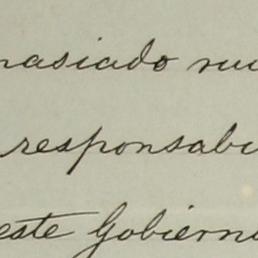 masiado nu
responsabi
este Gobiern